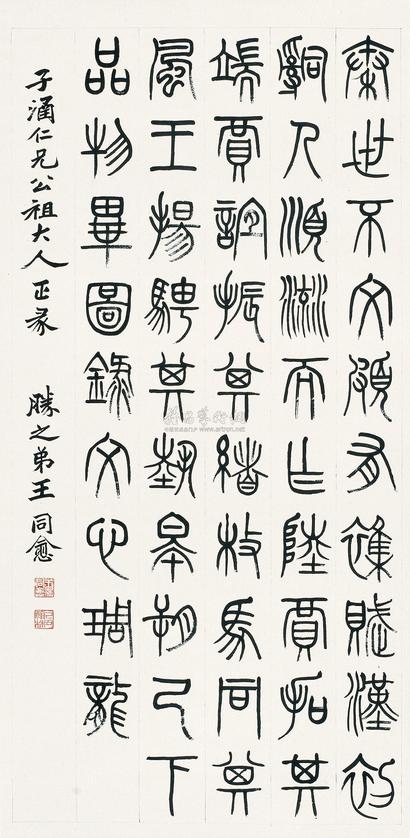 秦世不文頗有雜賦漢初
詞人順流而作陸賈拓其
端賈誼振其緒枚馬同其
風王揚騁其埶皋朔已下
品物畢圖錄文心琱龍
子涵仁兄公祖大人正彖
勝之弟王同愈